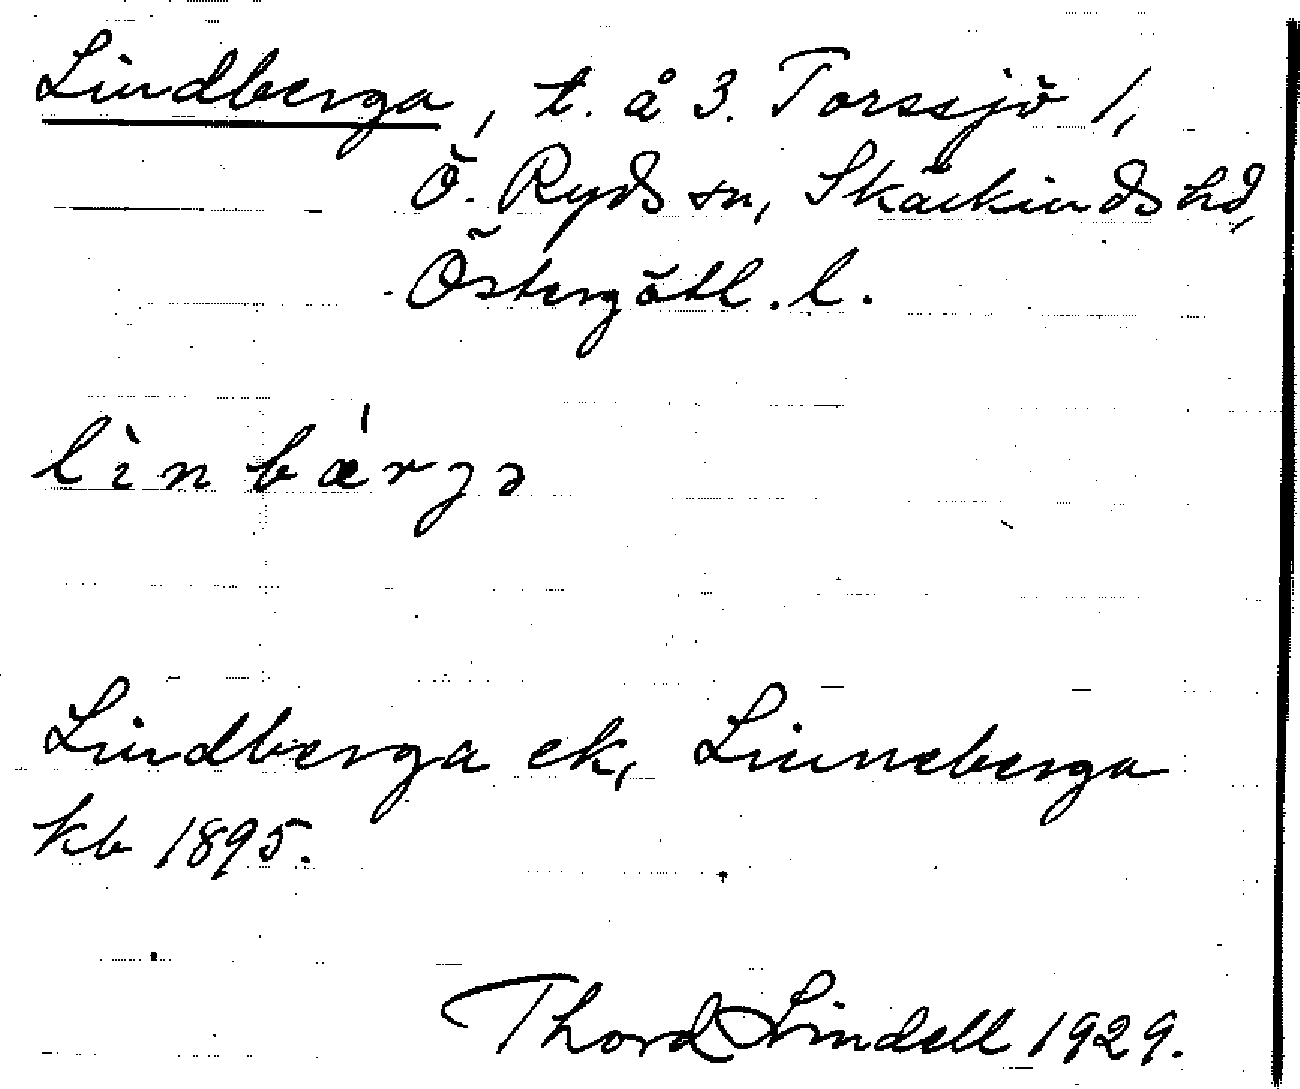 Lindberga, t. å 3. Torssjö 1,
Ö. Ryds sn, Skärkinds hd,
Östergötl. l.
lìnbǽrgə
Lindberga ek, Linneberga
kb 1895.
Thord Lindell 1929.